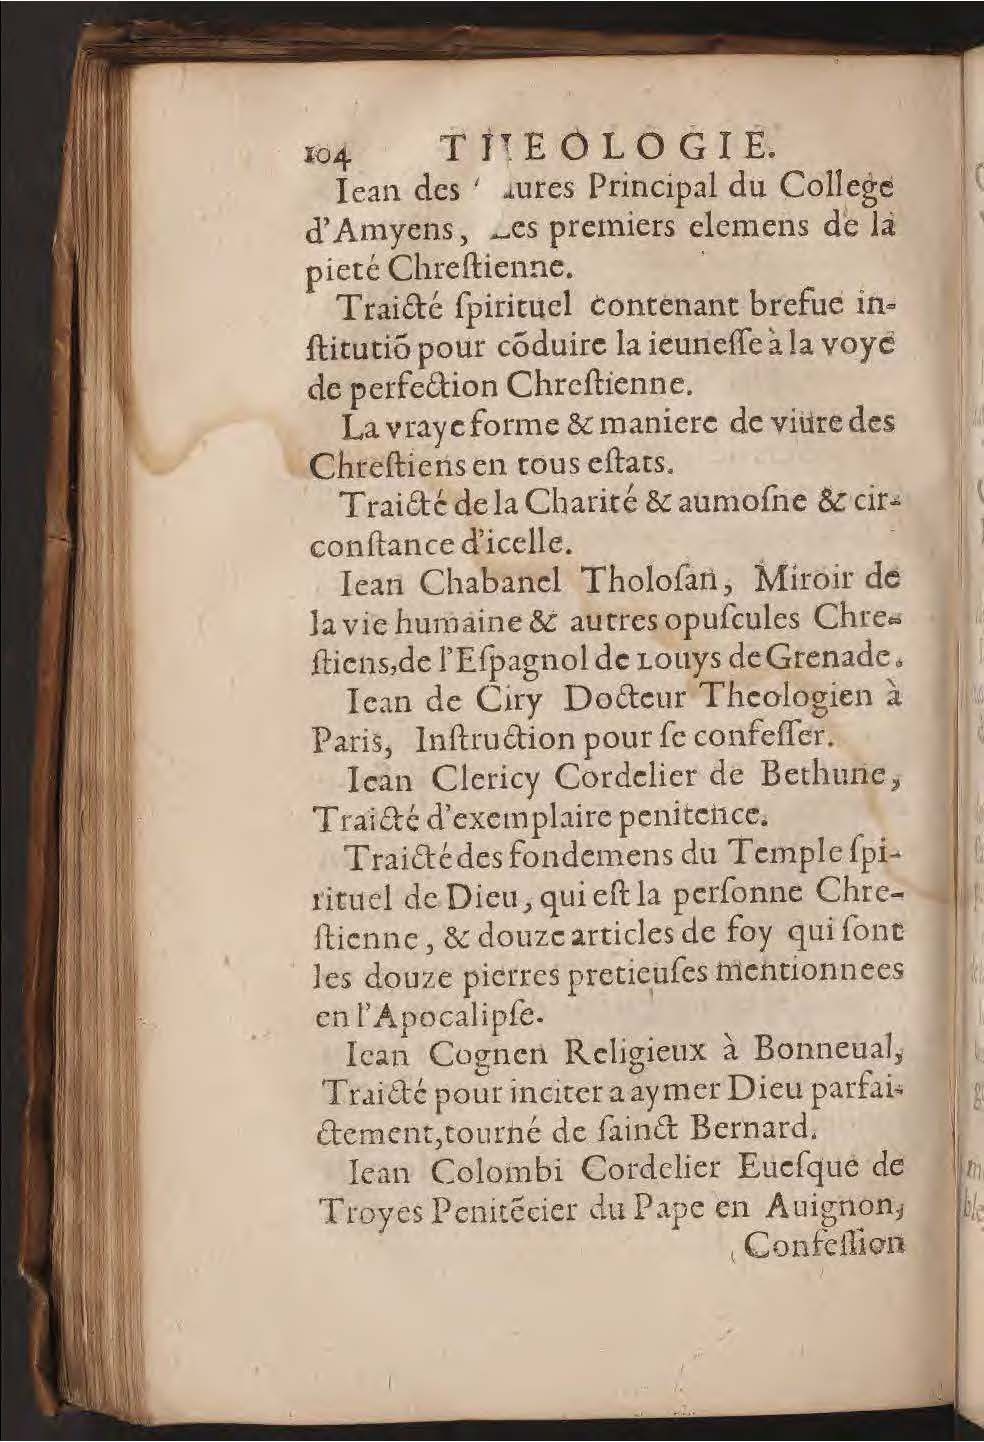 104 THEOLOGIE.
Iean des Principal du College
d'Amyens, premiers elemens de la
pieté Chreſtienne.
Traicté ſpirituel contenant brefue in-
ſtitutiõ pour cõduire la ieuneſſe à la voye
de perfection Chreſtienne.
La vraye forme & maniere de viure des
Chreſtiens en tous eſtats.
Traicté de la Charité & aumoſne & cir-
conſtance d'icelle.
Iean Chabanel Tholoſan, Miroir de
la vie humaine & autres opuſcules Chre-
ſtiens,de l'Eſpagnol de Louys de Grenade.
Iean de Ciry Docteur Theologien à
Paris, Inſtruction pour ſe confeſſer.
Iean Clericy Cordelier de Bethune,
Traicté d'exemplaire penitence.
Traicté des fondemens du Temple ſpi-
rituel de Dieu, qui eſt la perſonne Chre-
ſtienne, & douze articles de foy qui ſont
les douze pierres pretieuſes mentionnees
en l'Apocalipſe.
Iean Cognen Religieux à Bonneual,
Traicté pour inciter a aymer Dieu parfai-
ctement,tourné de ſainct Bernard.
Iean Colombi Cordelier Eueſque de
Troyes Penitẽcier du Pape en Auignon,
Confeſſion